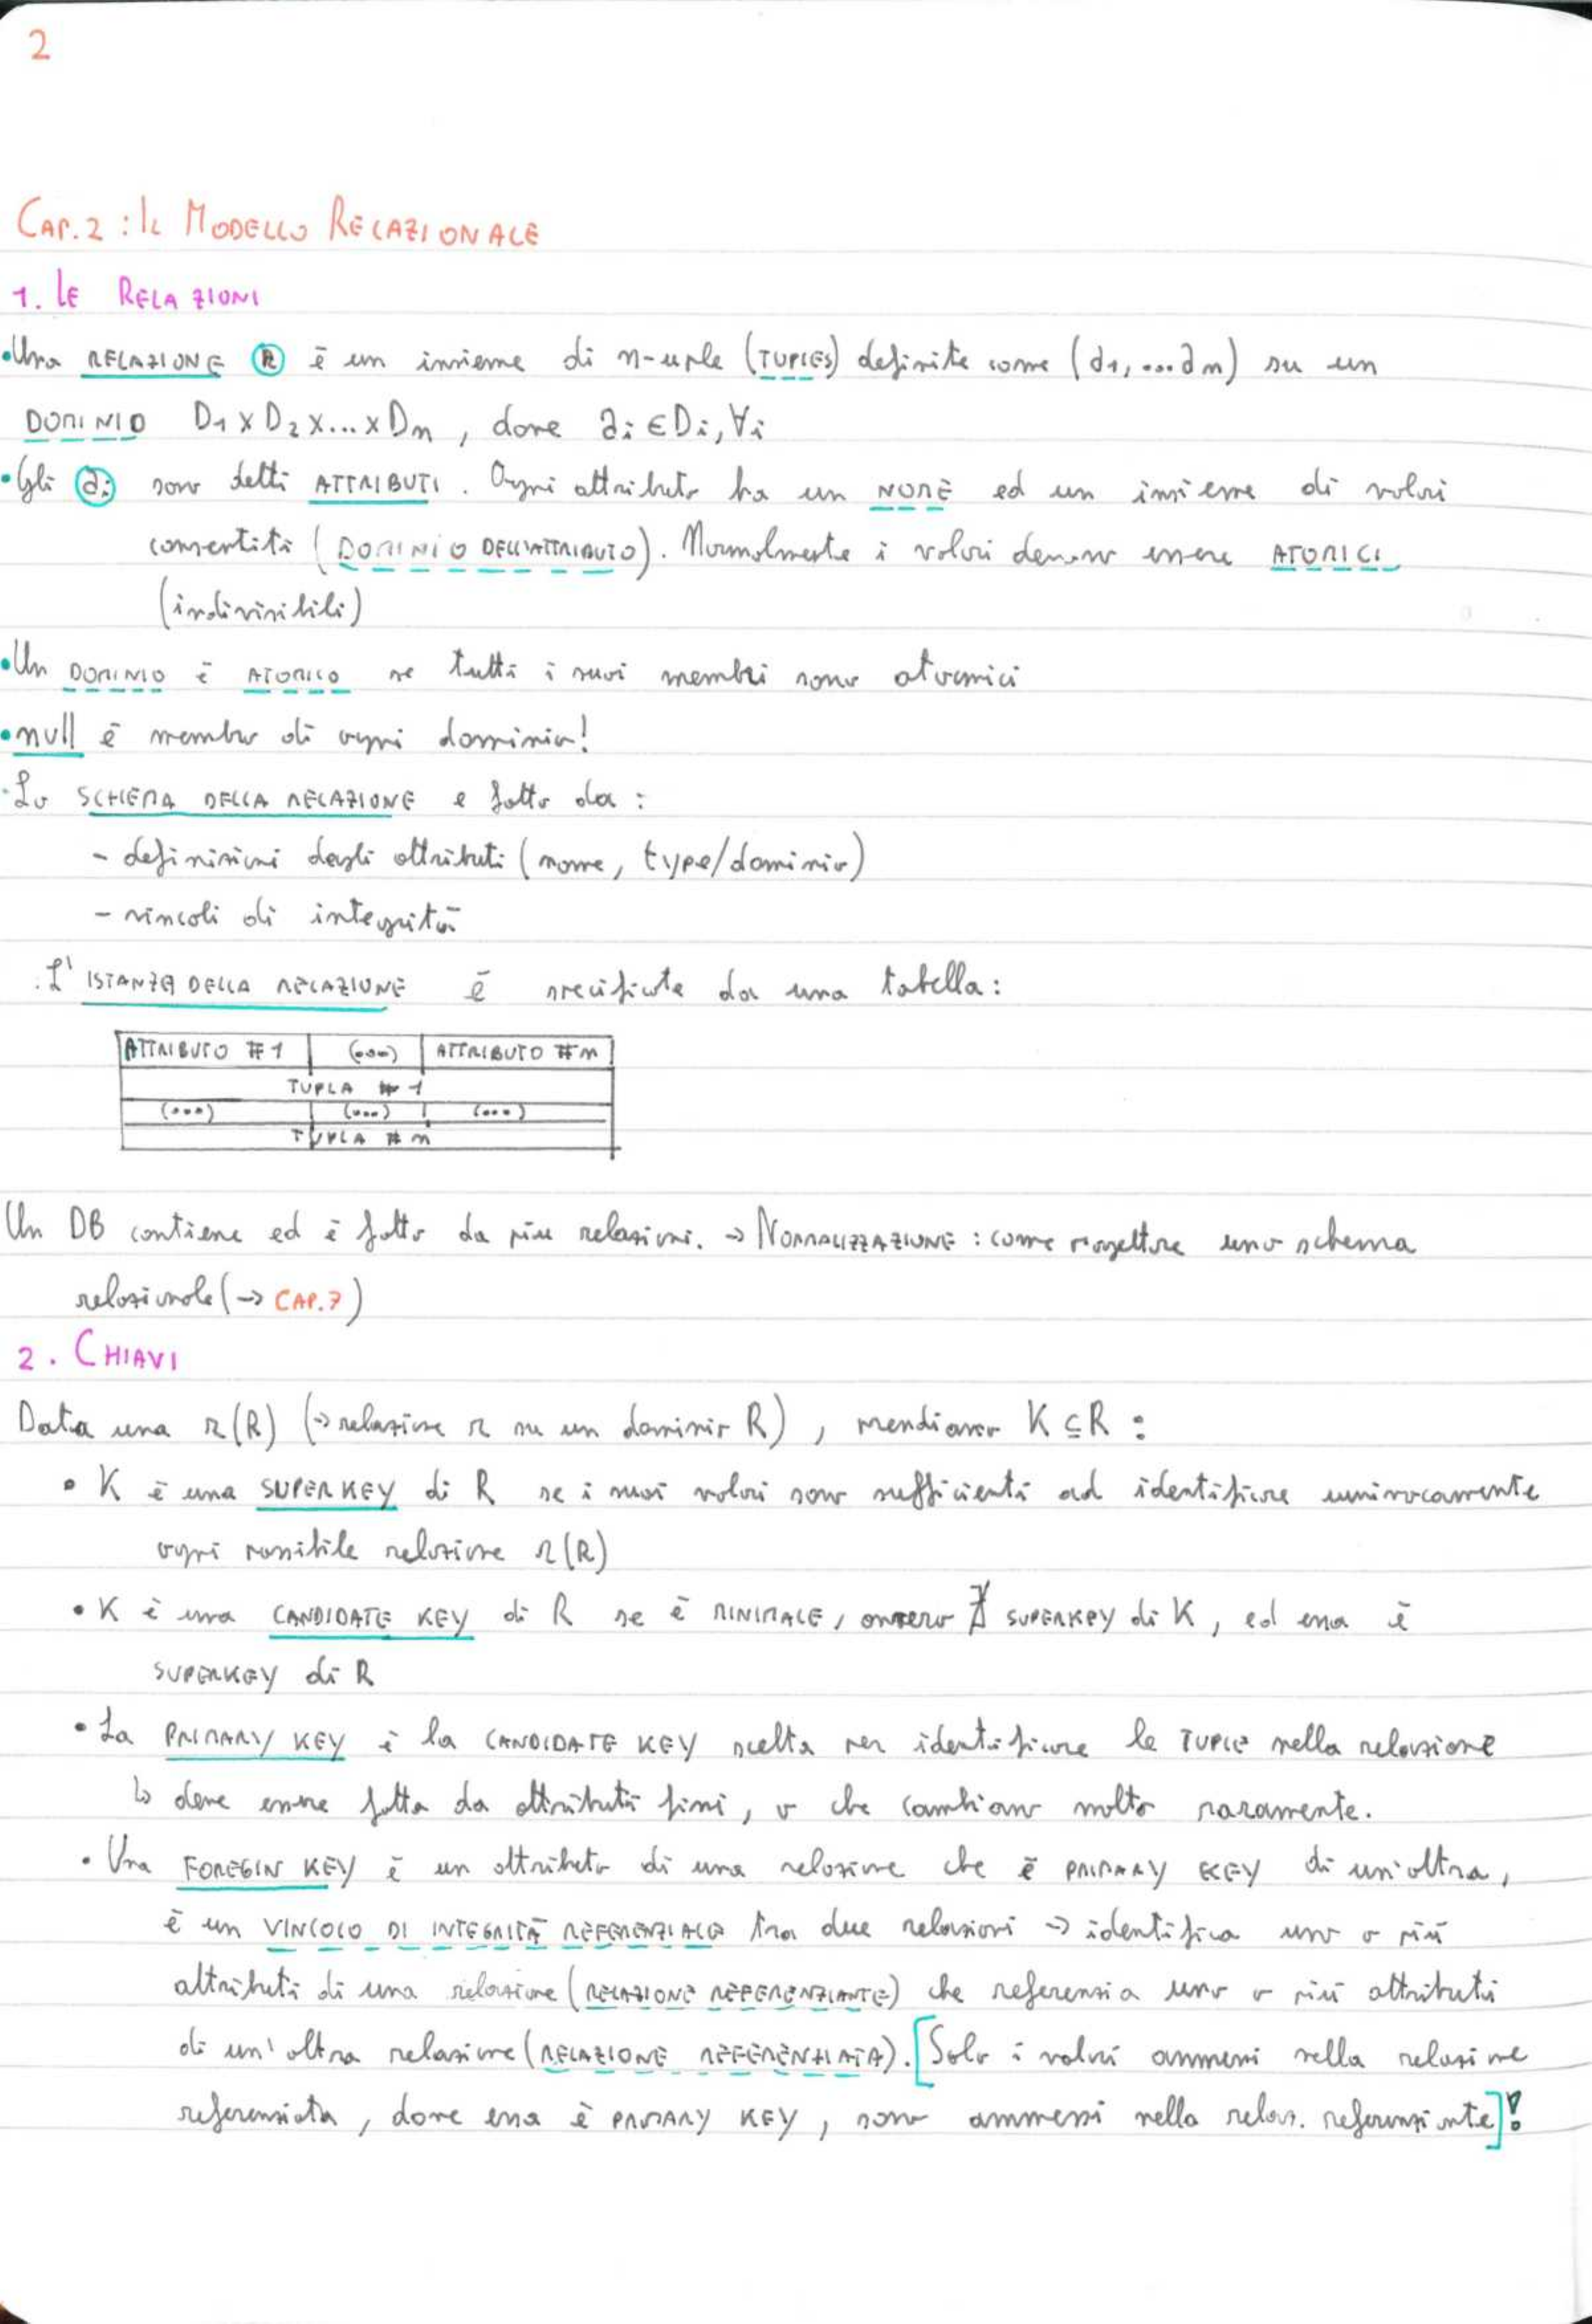 2
CAP. 2 : IL MODELLO RELAZIONALE
1. LE RELAZIONI
•Una RELAZIONE R è un insieme di n-uple (TUPLES) definite come (a1, ... an) su un
DOMINIO D1 x D2 x ... x Dn, dove ai ∈ Di, ∀i
•Gli ai sono detti ATTRIBUTI. Ogni attributo ha un NOME ed un insieme di valori
consentiti (DOMINIO DELL'ATTRIBUTO). Normalmente i valori devono essere ATOMICI
(indivisibili)
•Un DOMINIO è ATOMICO se tutti i suoi membri sono atomici
•null è membro di ogni dominio!
·Lo SCHEMA DELLA RELAZIONE è fatto da :
- definizioni degli attributi (nome, type/dominio)
- vincoli di integrità
·L'ISTANZA DELLA RELAZIONE è specificata da una tabella:
ATTRIBUTO #1 (...) ATTRIBUTO #n
TUPLA #1
(...) (...) (...)
TUPLA #n
Un DB contiene ed è fatto da più relazioni. → NORMALIZZAZIONE : come progettare uno schema
relazionale (→ CAP.7)
2. CHIAVI
Data una r(R) (→ relazione r su un dominio R), prendiamo K ⊆ R :
• K è una SUPERKEY di R se i suoi valori sono sufficienti ad identificare univocamente
ogni possibile relazione r(R)
• K è una CANDIDATE KEY di R se è MINIMALE, ovvero ∄ SUPERKEY di K, ed essa è
SUPERKEY di R
• La PRIMARY KEY è la CANDIDATE KEY scelta per identificare le TUPLE nella relazione
↳ deve essere fatta da attributi fissi, o che cambiano molto raramente.
• Una FOREGIN KEY è un attributo di una relazione che è PRIMARY KEY di un'altra,
è un VINCOLO DI INTEGRITÀ REFERENZIALE tra due relazioni → identifica uno o più
attributi di una relazione (RELAZIONE REFERENZIANTE) che referenzia uno o più attributi
di un'altra relazione (RELAZIONE REFERENZIATA). [Solo i valori ammessi nella relazione
referenziata, dove essa è PRIMARY KEY, sono ammessi nella relaz. referenziante]!